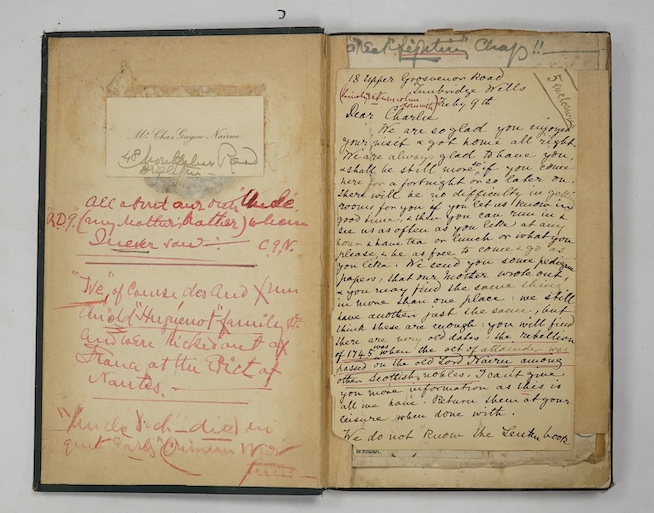 Mr. Chas. Guyon Nairne.
48 Road
All about our own "Uncle"
"R.D.G." (my Mother's brother) whom
I never saw — C.G.N.
"We," of course des and from
an "old Huguenot" family &
and were kicked out of
France at the Edict of
Nantes. —
"Uncle Dick" died in
great Crimean War
time
Great "fighting" Chap!! —
18 Upper Grosvenor Road
Tunbridge Wells
Feby 9th
Dear Charlie
We are so glad you enjoyed
your visit & got home all right.
We are always glad to have you,
& shall be still more so if you come
here for a fortnight or so later on.
There will be no difficulty in getting
rooms for you if you let us know in
good time, & then you can run in &
see us as often as you like at any
hour & have tea or lunch or what you
please, & be as free to come & go as
you like. We send you some pedigree
papers, that our Mother wrote out
& you may find the same thing
in more than one place: we still
have another just the same, but
think these are enough: you will find
there are very old dates: the rebellion
of 1745 was when the act of attainder was
passed on the old Lord Nairn among
other Scottish nobles. I can't give
you more information as this is
all we have. Return them at your
leisure when done with.
We do not know the